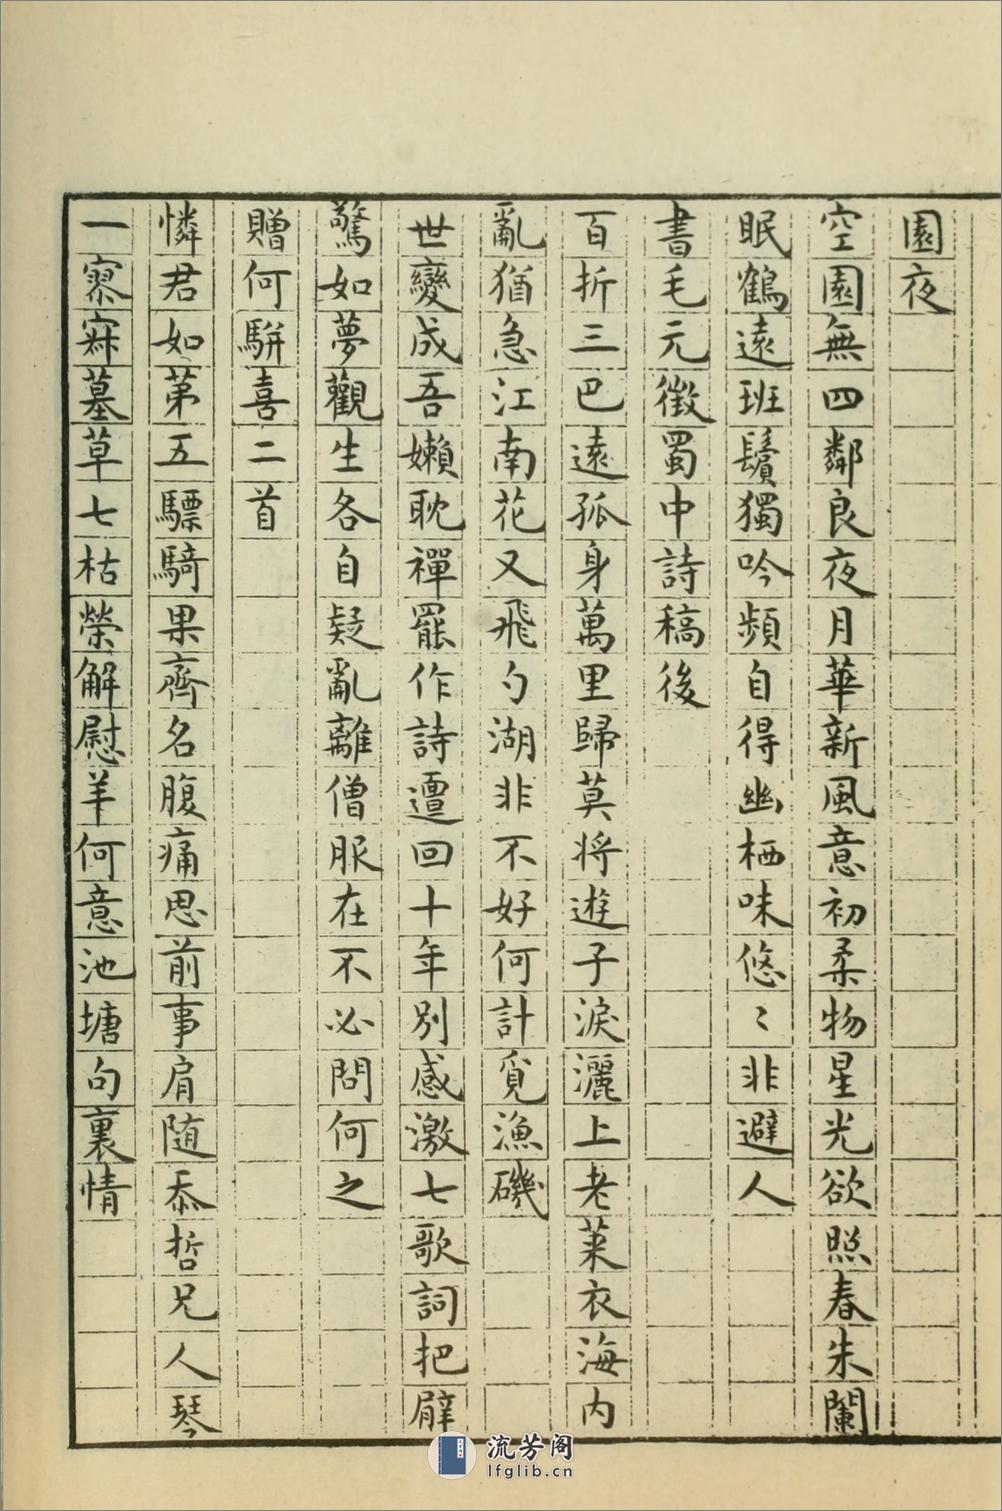 園夜
空園無四鄰良夜月華新風意初柔物星光欲照春朱闌
眠鶴遠班鬢獨吟頻自得幽栖味悠〻非避人
書毛元徵蜀中詩稿後
百折三巴遠孤身萬里歸莫將遊子淚灑上老萊衣海內
亂猶急江南花又飛勺湖非不好何計覓漁磯
世變成吾嬾耽禪罷作詩遭回十年別感激七歌詞把臂
驚如夢觀生各自疑亂離僧服在不必問何之
贈何駢喜二首
憐君如第五驃騎果齊名腹痛思前事肩随忝哲兄人琴
一寥寂墓草七枯榮解慰羊何意池塘句裏情
流芳阁
lfglib.cn